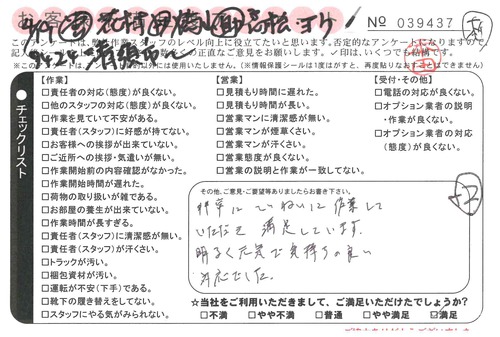 № 039437
このアンケートは、
チェックリスト
【作業】
□責任者の対応(態度)が良くない。
□他のスタッフの対応(態度)が良くない。
□作業を見ていて不安がある。
□責任者(スタッフ)に好感が持てない。
□お客様への挨拶が出来ていない。
□ご近所への挨拶・気遣いが無い。
□作業開始前の内容確認がなかった。
□作業開始時間が遅れた。
□荷物の取り扱いが雑である。
□お部屋の養生が出来ていない。
□作業時間が長すぎる。
□責任者(スタッフ)に清潔感が無い。
□責任者(スタッフ)が汗くさい。
□トラックが汚い。
□梱包資材が汚い。
□運転が不安(下手)である。
□靴下の履き替えをしてない。
□スタッフにやる気がみられない。
【営業】
□見積もり時間に遅れた。
□見積もり時間が長い。
□営業マンに清潔感が無い。
□営業マンが煙草くさい。
□営業マンが汗くさい。
□営業態度が良くない。
□営業の説明と作業が一致してない。
【受付・その他】
□電話の対応が良くない。
□オプション業者の説明
・作業が良くない。
□オプション業者の対応
(態度)が良くない。
その他、ご意見・ご要望等ありましたらお書き下さい。
非常にていねいに作業して
いただき満足しています。
明るく元気で気持ちの良い
対応でした。
☆当社をご利用いただきまして、ご満足いただけたでしょうか?
□不満 □やや不満 □普通 □やや満足 ☑満足